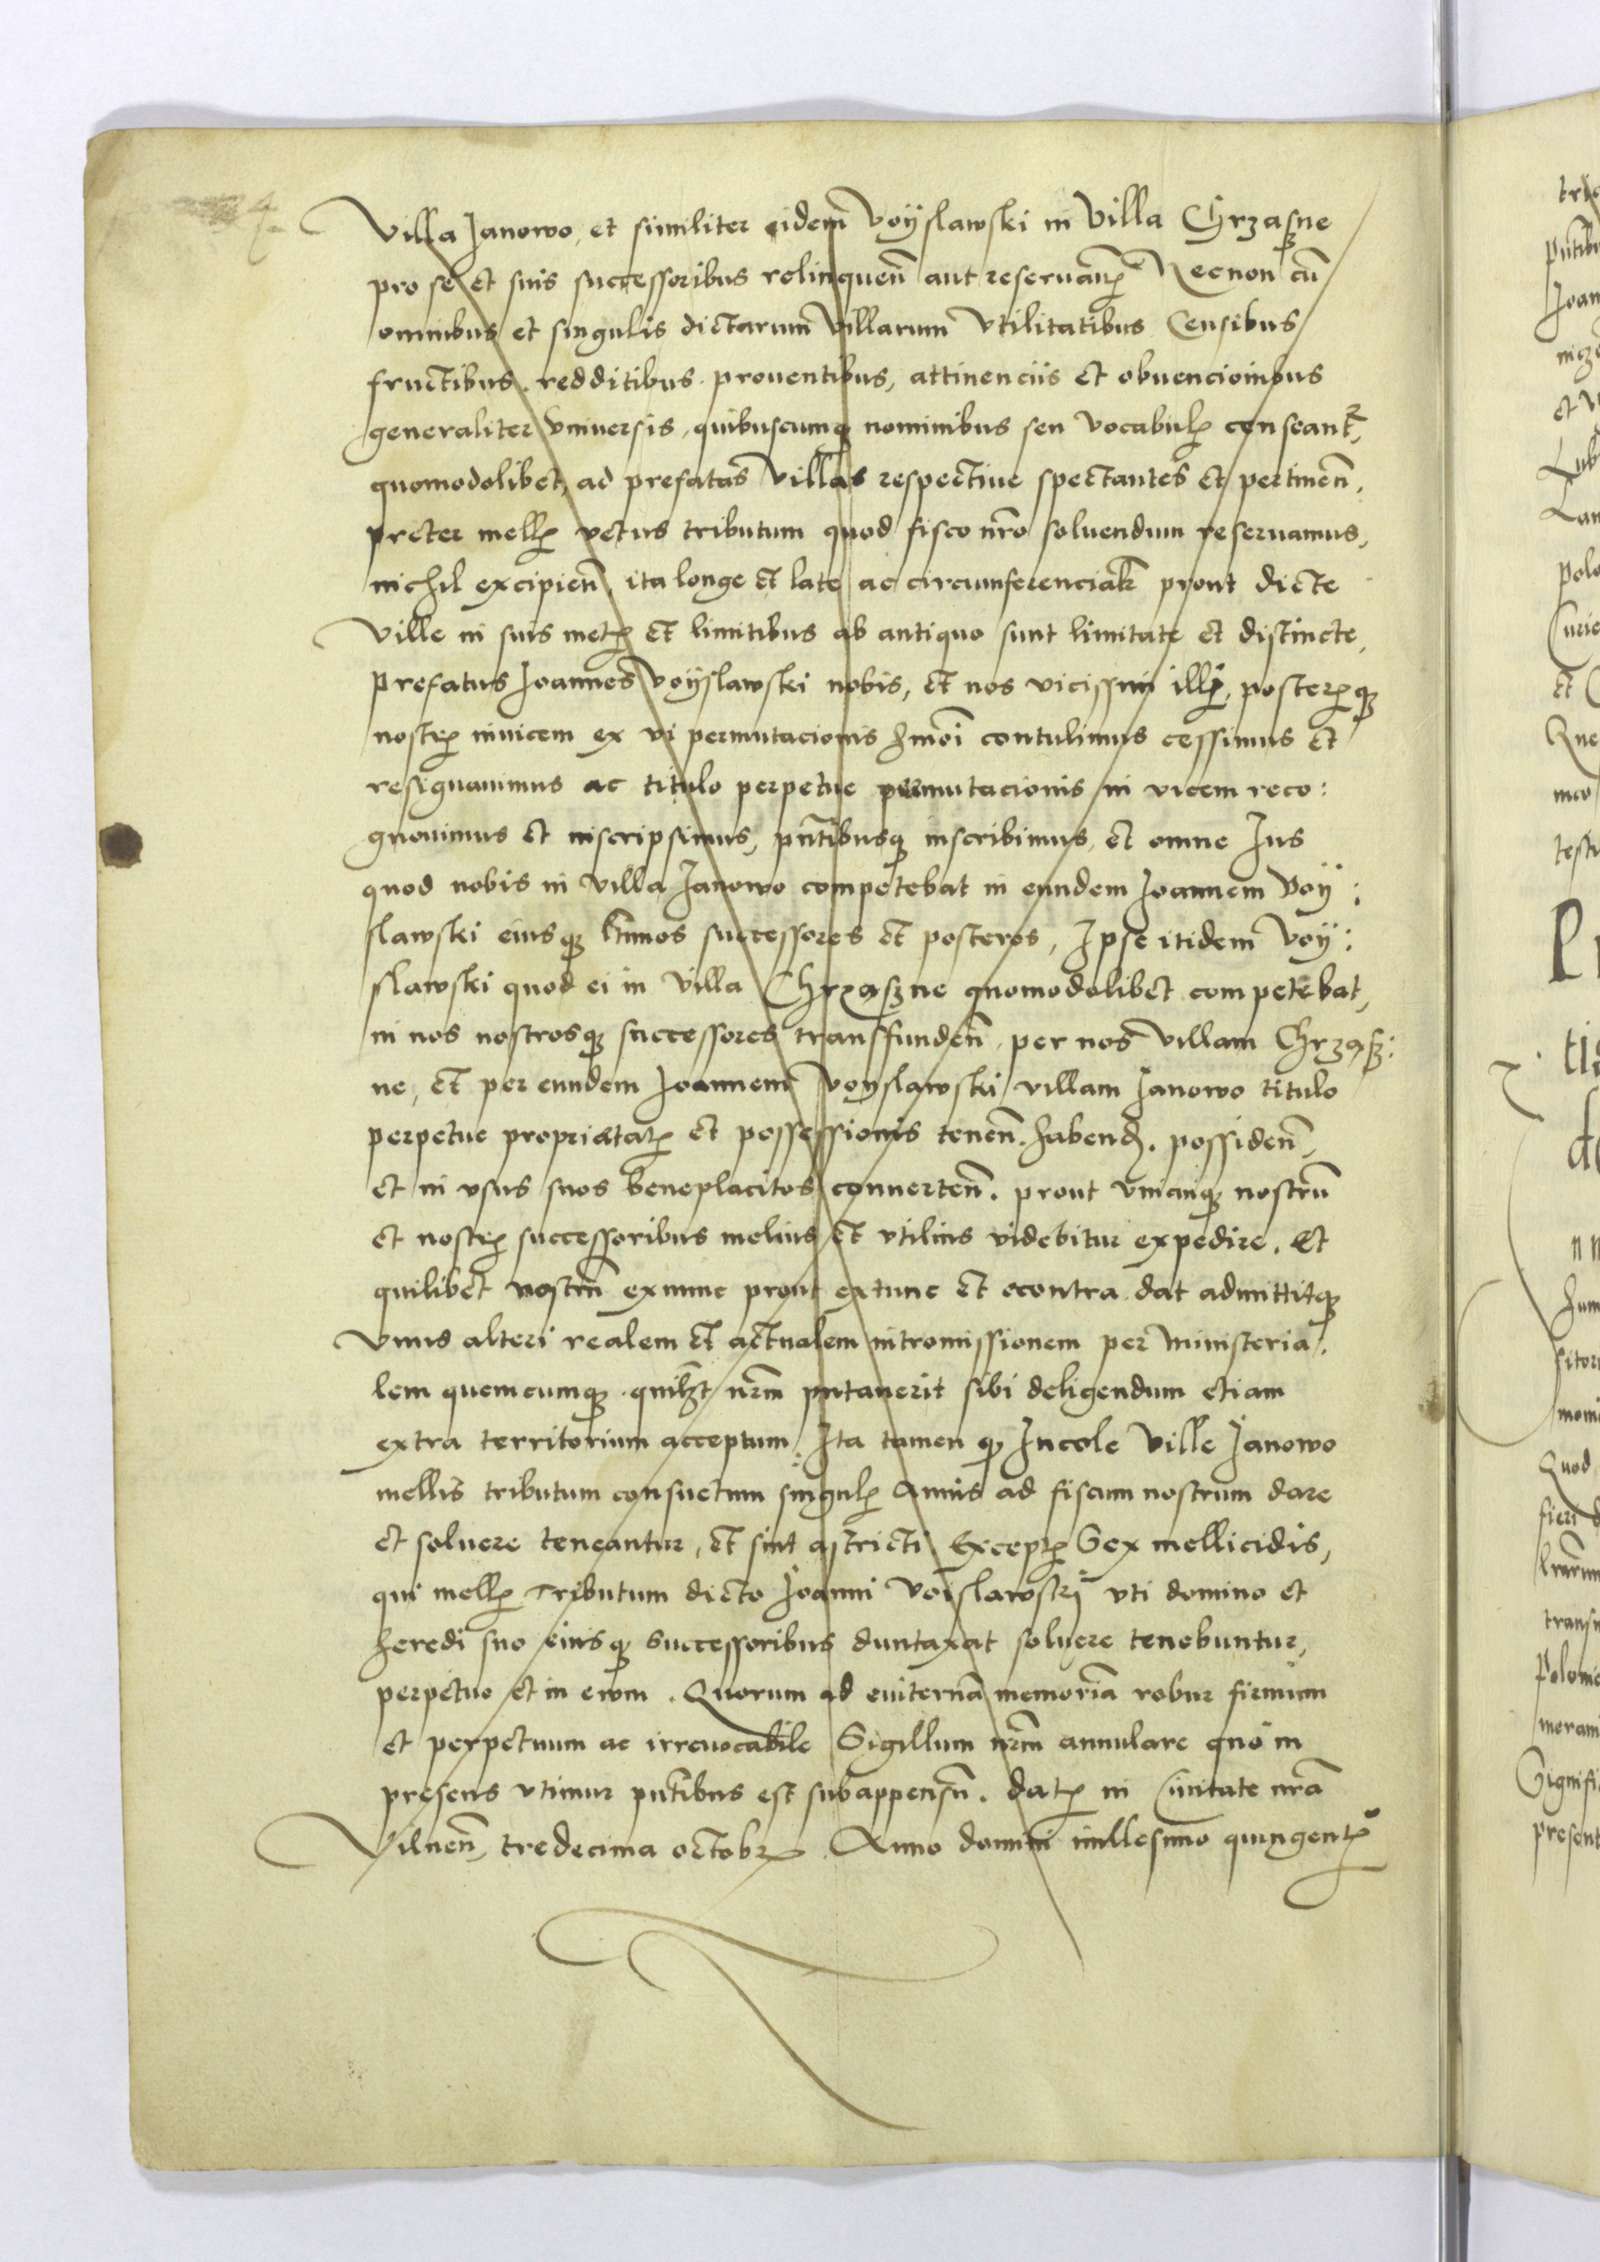 Villa Janowo, et similiter eidem Voÿslawski in Villa Chrząszne
pro se et suis successoribus relinquen̄ aut reseruan̄ Necnon cū
omnibus et singulis dictarum Villarum Vtilitatibus Censibus
fructibus. redditibus. prouentibus, attinenciis et obuencionibus
generaliter Vniuersis, quibuscumqꝫ nominibus seu vocabulꝭ censeantr̄,
quomodolibet, ad prefatas Villas respectiue spectantes et pertinen̄.
preter mellꝭ vetus tributum quod fisco nr̄o soluendum reseruamus,
nichil excipien̄, ita longe et late ac circumferencialr̄ prout dicte
Ville in suis metꝭ et limitibus ab antiquo sunt limitate et distincte,
prefatus Joannes Voÿslawski nobis, et nos vicissim illi, posterꝭqꝫ
nostrꝭ inuicem ex vi permutacionis hm̄oi contulimus cessimus et
resignauimus ac titulo perpetue permutacionis in vicem reco:
gnouimus et inscripsimus, pn̄tibusqꝫ inscribimus, et omne Jus
quod nobis in villa Janowo competebat in eundem Joannem Voÿ:
slawski eiusqꝫ lt̄imos successores et posteros, Ipse itidem Voÿ:
slawski quod ei in Villa Chrząszne quomodolibet competebat,
in nos nostrosqꝫ successores transfunden̄. per nos villam Chrząsz:
ne, et per eundem Joannem Voyslawski villam Janowo titulo
perpetue proprietatꝭ et possessionis tenen̄. habend̄. possiden̄,
et in vsus suos beneplacitos conuerten̄. prout vnicuiqꝫ nostrū
et nostrꝭ successoribus melius et vtilius videbitur expedire. Et
quilibet nostrū exnunc prout extunc et econtra dat admittitqꝫ
vnus alteri realem et actualem intromissionem per ministeria:
lem quemcumqꝫ quilꝫt nr̄m putauerit sibi deligendum etiam
extra territorium acceptum: Ita tamen qꝫ Incole Ville Janowo
mellis tributum consuetum singulꝭ Annis ad fiscum nostrum dare
et soluere teneantur, et sint astricti Exceptꝭ Sex mellicidis,
qui mellꝭ Tributum dicto Joanni Voislawskÿ vti domino et
heredi suo eiusqꝫ successoribus duntaxat soluere tenebuntur,
perpetuo et in ewm. Quorum ad euiternā memoriā robur firmum
et perpetuum ac irreuocabile Sigillum nr̄m annulare quo in
presens vtimur pn̄tibus est subappensū. datꝭ in Ciuitate nr̄a
Vilnen̄, tredecima octobrꝭ Anno domini millesimo quingentꝭº